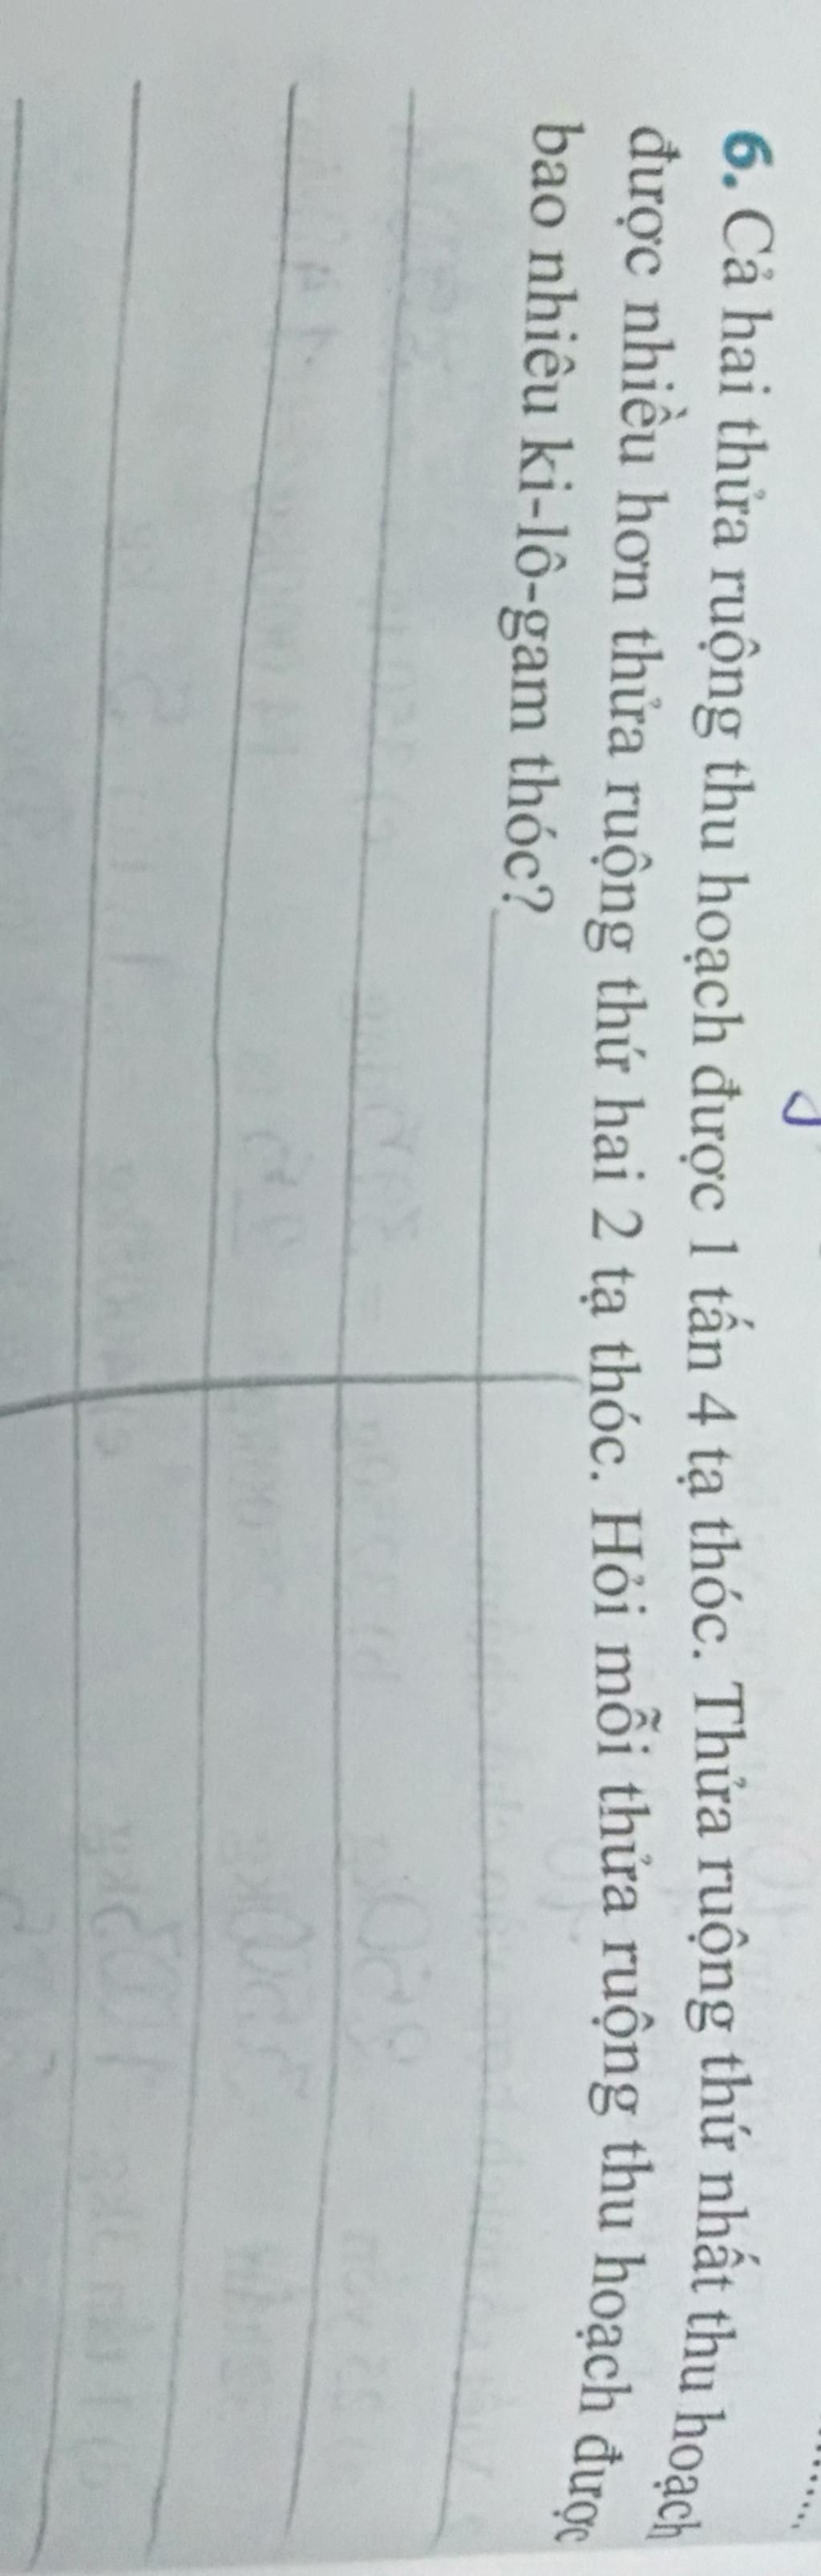 6. Cả hai thửa ruộng thu hoạch được 1 tấn 4 tạ thóc. Thửa ruộng thứ nhất thu hoạch
được nhiều hơn thửa ruộng thứ hai 2 tạ thóc. Hỏi mỗi thửa ruộng thu hoạch được
bao nhiêu ki-lô-gam thóc?